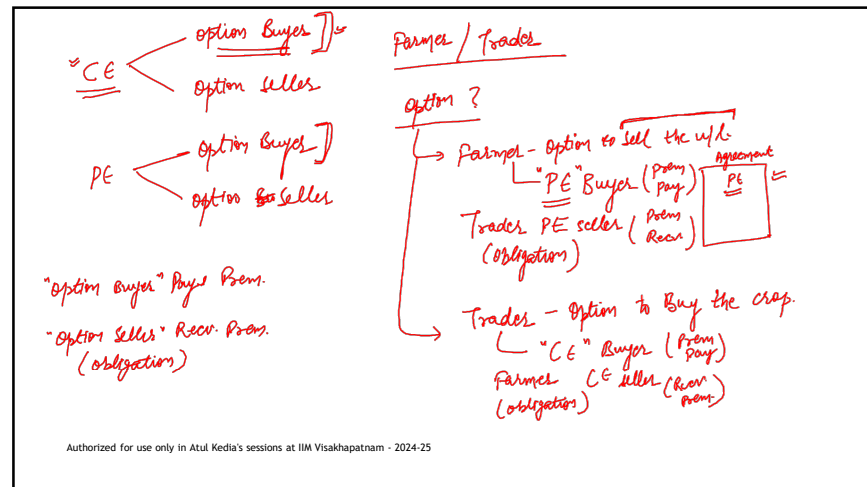 "CE
option Buyer
option seller
PE
option Buyer
option seller
"option Buyer" Pays Prem.
"option seller" Recv. Prem.
(obligation)
Farmer / Trader
option ?
Farmer - option to sell the u/l.
"PE" Buyer (Prem Pay)
Agreement
PE
Trader PE seller (Prem Recv)
(obligation)
Trader - option to Buy the crop.
"CE" Buyer (Prem Pay)
Farmer CE seller (Recv Prem.)
(obligation)
Authorized for use only in Atul Kedia's sessions at IIM Visakhapatnam - 2024-25